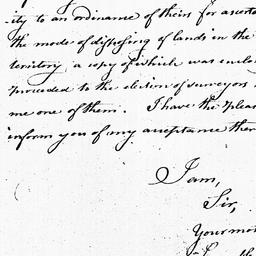 ity to an ordinance of theirs for ascerta
the mode of disposing of lands in the
territory, a copy of which was enclo
proceeded to the election of surveyors
me one of them. I have the pleas
inform you of my acceptance ther
I am,
Sir,
Your mo